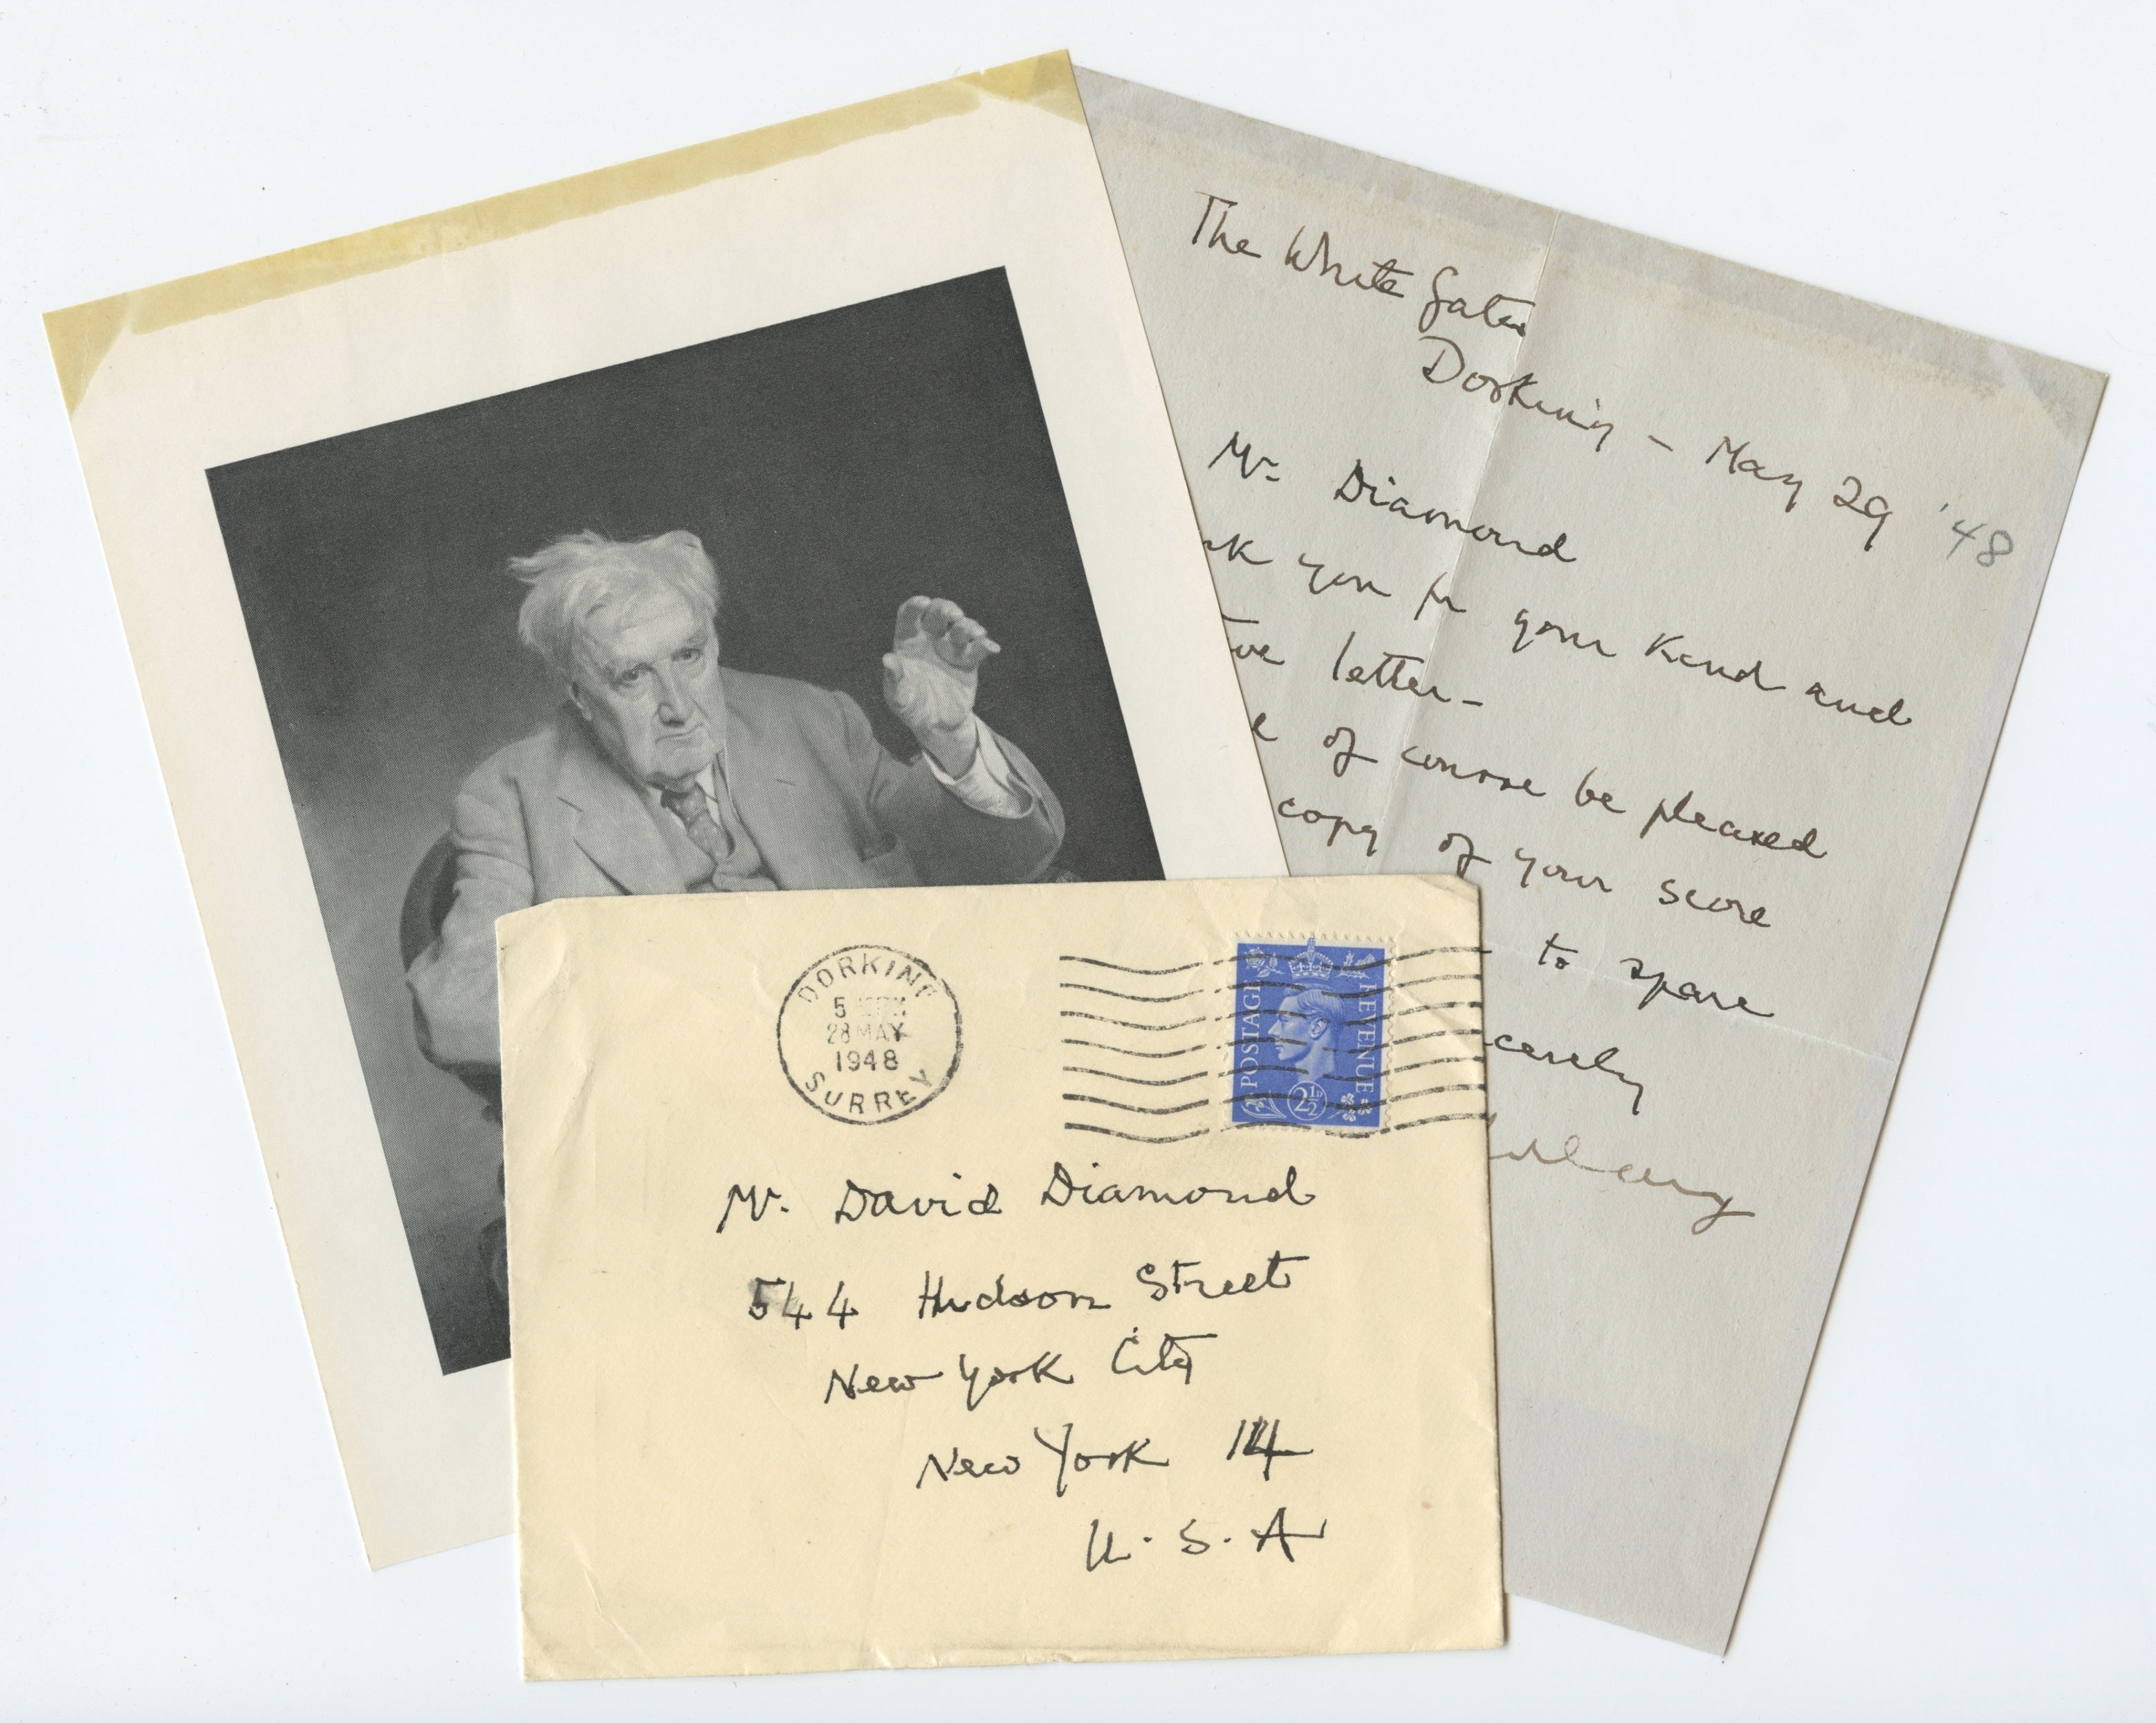 The White Gates
Dorking - May 29 '48
Mr Diamond
you for your kind and
letter-
of course be pleased
copy of your score
to spare
cerely
DORKING
5
28 MAY
1948
SURREY
POSTAGE
REVENUE
2½D
Mr. David Diamond
544 Hudson Street
New York City
New York 14
U.S.A